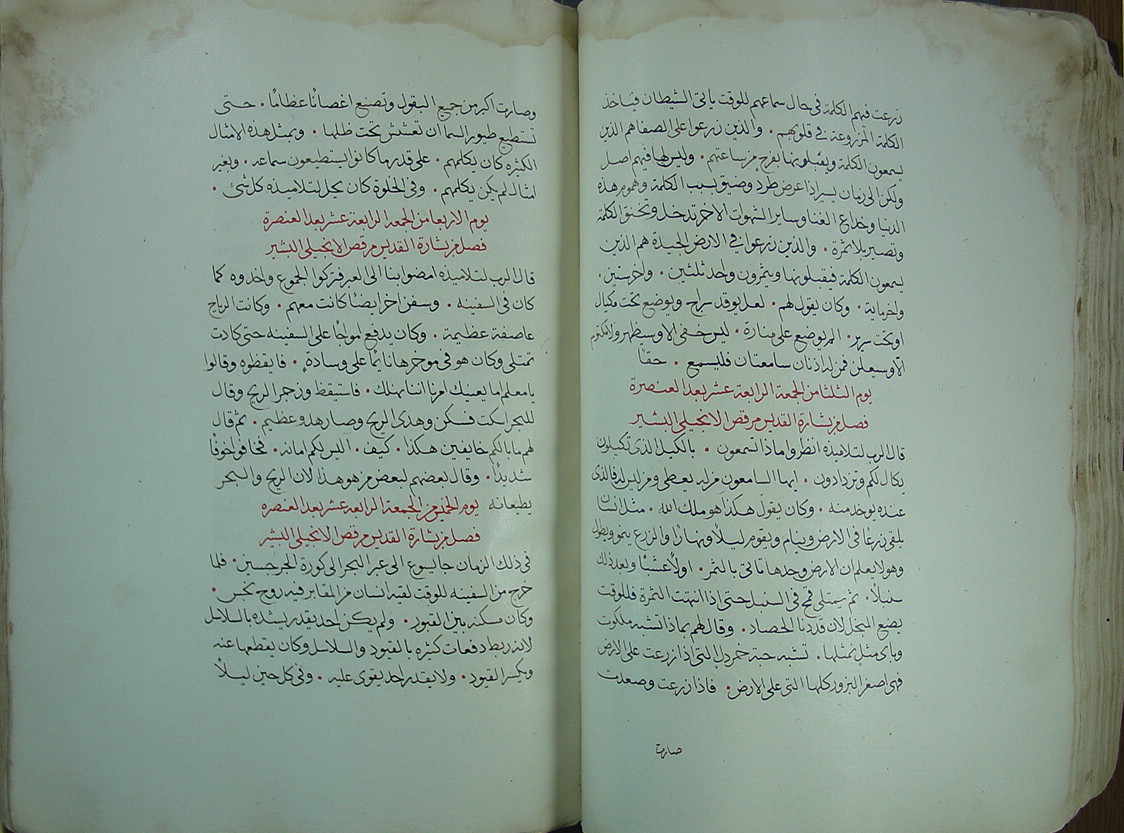 زرعت فيهم الكلمة في حال سماعهم للوقت ياتي الشيطان فياخذ
الكلمة المزروعة في قلوبهم • والذين زرعوا على الصفا هم الذين
يسمعون الكلمة ويقبلونها بفرح من ساعتهم • وليس لها فيهم اصل
ولكن الى زمان يسير اذا عرض طرد وضيق بسبب الكلمة وهموم هذه
الدنيا وخداع الغنا وساير الشهوات الاخر تدخل وتخنق الكلمة
وتصير بلا ثمرة • والذين زرعوا في الارض الجيدة هم الذين
يسمعون الكلمة فيقبلونها ويثمرون واحد ثلثين • واخر ستين •
واخر ماية • وكان يقول لهم • لعل يوقد سراج ويوضع تحت مكيال
او تحت سرير • الم يوضع على منارة • ليس خفى الا وسيظهر ولا مكتوم
الا وسيعلن فمن له اذنان سامعتان فليسمع • حقا
يوم الثلثا من الجمعة الرابعة عشر بعد العنصرة
فصل من بشارة القديس مرقص الانجيلي البشير
قال الرب لتلاميذه انظروا ماذا تسمعون • بالكيل الذي تكيلون
يكال لكم وتزدادون • ايها السامعون من له يعطى ومن ليس له فالذي
عنده يوخذ منه • وكان يقول هكذا هو ملك الله • مثل انسان
يلقي زرعًا في الارض وينام ويقوم ليلًا ونهارًا والزرع ينمو ويطول
وهو لا يعلم ان الارض وحدها تاتي بالثمر • اولًا عشبًا وبعد ذلك
سنبلًا • ثم يمتلي قمح في السنبل حتى اذا انتهت الثمرة فللوقت
يضع المنجل لان قد دنا الحصاد • وقال لهم بماذا نشبه ملكوت
وباي مثل نمثلها • تشبه حبة خردل التي اذا زرعت على الارض
فهي اصغر البزور كلها التي على الارض • فاذا زرعت وصعدت
صارت
وصارت اكبر من جميع البقول وتصنع اغصانًا عظامًا • حتى
تستطيع طيور السما ان تعشش تحت ظلها • وبمثل هذه الامثال
الكثيره كان يكلمهم • على قدر ما كانوا يستطيعون سماعه • وبغير
امثال لم يكن يكلمهم • وفي الخلوة كان يحل لتلاميذه كل شي •
يوم الاربعا من الجمعة الرابعة عشر بعد العنصرة
فصل من بشارة القديس مرقص الانجيلي البشير
قال الرب لتلاميذه امضوا بنا الى العبر فتركوا الجموع واخذوه كما
كان في السفينه • وسفن اخر ايضًا كانت معهم • وكانت الرياح
عاصفة عظيمة • وكان يدفع امواجًا على السفينه حتى كادت
تمتلي وكان هو في موخرها نايمًا على وسادة • فايقظوه وقالوا
يا معلم اما يعنيك امرنا اننا نهلك • فاستيقظ وزجر الريح وقال
للبحر اسكت فسكن وهدى الريح وصار هدو عظيم • ثم قال
لهم ما بالكم خايفين هكذا • كيف • اليس لكم امانه • فخافوا خوفًا
شديدًا • وقال بعضهم لبعض من هو هذا لان الريح والبحر
يطيعانه يوم الخميس من الجمعة الرابعة عشر بعد العنصره
فصل من بشارة القديس مرقص الانجيلي البشير
في ذلك الزمان جا ايسوع الى عبر البحر الى كورة الجرجسين • فلما
خرج من السفينه للوقت لقيه انسان من المقابر فيه روح نجس •
وكان مسكنه بين القبور • ولم يكن احد يقدر يشده بالسلاسل
لانه ربط دفعات كثيره بالقيود والسلاسل وكان يقطعها عنه
ويكسر القيود • ولا يقدر احد يقوى عليه • وفي كل حين ليلًا